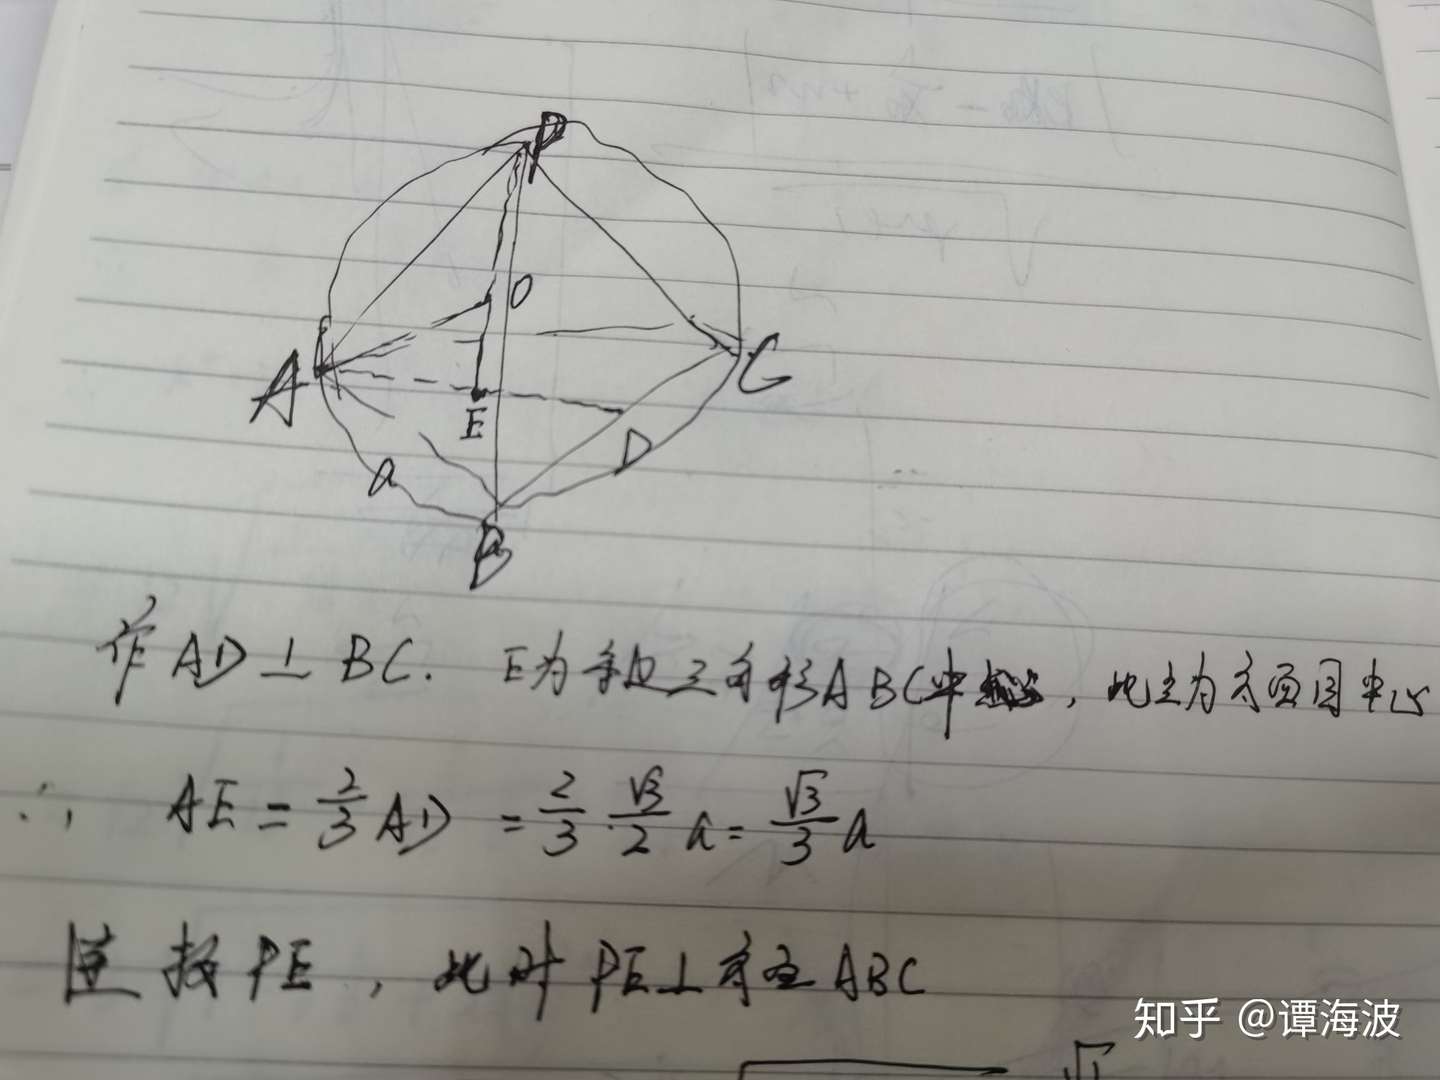 P
O
A
C
E
D
a
B
作 AD⊥BC. E为等边三角形ABC中心, 此E为方面圆中心
∴ AE = 2/3 AD = 2/3 · √3/2 a = √3/3 a
连接PE, 此时PE⊥ ABC
知乎 @谭海波